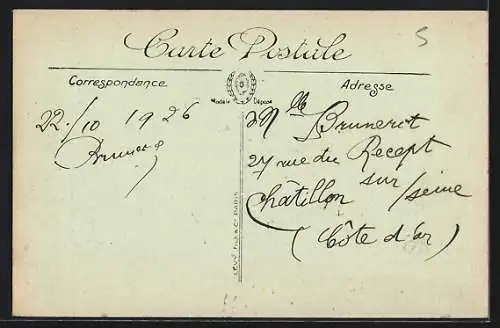 Carte Postale
5
Correspondance
Modèle Déposé
Adresse
22./10 1926
Mlle Bruneret
27 rue du Recept
Châtillon sur/seine
(Côte d'or)
LEVY FILS & Cie PARIS